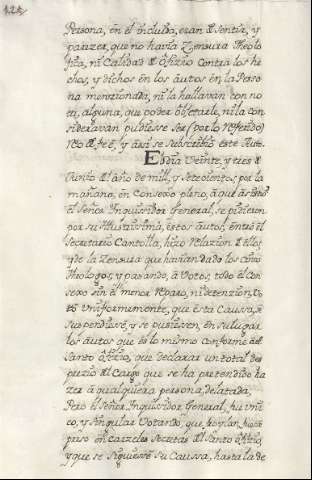 125
Persona, en el incluso, eran de sentir, y
parezer, que no havia Zensura Theolo
gica, ni Calidad de ofizio contra los he
chos, y dichos en los autos en la Perso
na menzionada, ni la hallavan con no
ta, alguna, que poder objetarle, ni la con
sideravan pudiesse ser (por lo Referido)
Reo de feè, y asi se subscribio este Auto.
El dia Veinte, y tres de
Junio de el año de mill, y Setezientos, por la
mañana, en Consexo pleno, à que asistio
el Señor Inquisidor General, se pidieron
por su Illustrissima, estos autos, entrò el
Secretario Cantolla, hizo Relazion de ellos,
y de la Zensura que havian dado los cinco
Theologos, y pasando, à Votos, todo el Con
sexo sin el menor Reparo, ni detenzion, Vo
tò Uniformemente, que esta Caussa, se
suspendiesse, y se pusiesen, en su lugar
los autos que es lo mismo conforme al
Santo ofizio, que declarar un total des
puezio de el Cargo que se ha pretendido ha
zer à qualquiera persona, delatada,
Pero el Señor Inquisidor General, fue uni
co, y singular Votando, que fuesse
preso en carzeles Secretas de el Santo ofizio,
y que se siguiesse su Caussa, hasta la de